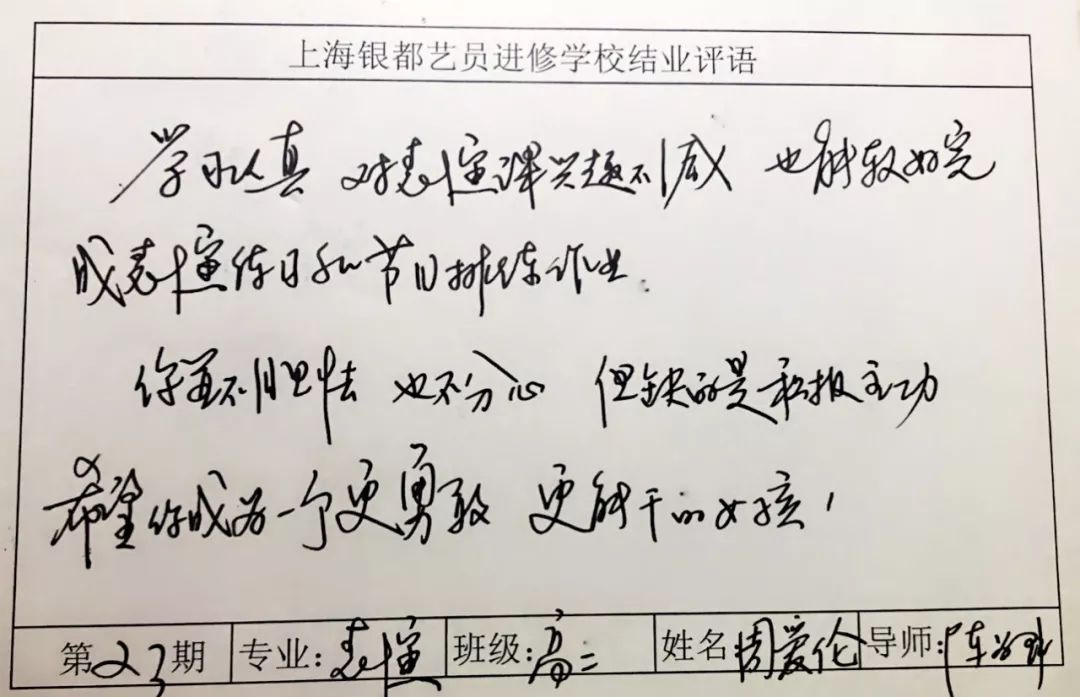 上海银都艺员进修学校结业评语
学习认真 对表演课兴趣不减 也能较好完
成表演练习和节目排练作业.
你并不胆怯 也不分心 但缺的是积极主动
希望你成为一个更勇敢 更能干的女孩!
第23期 专业:表演 班级:高二 姓名周爱伦 导师:陈